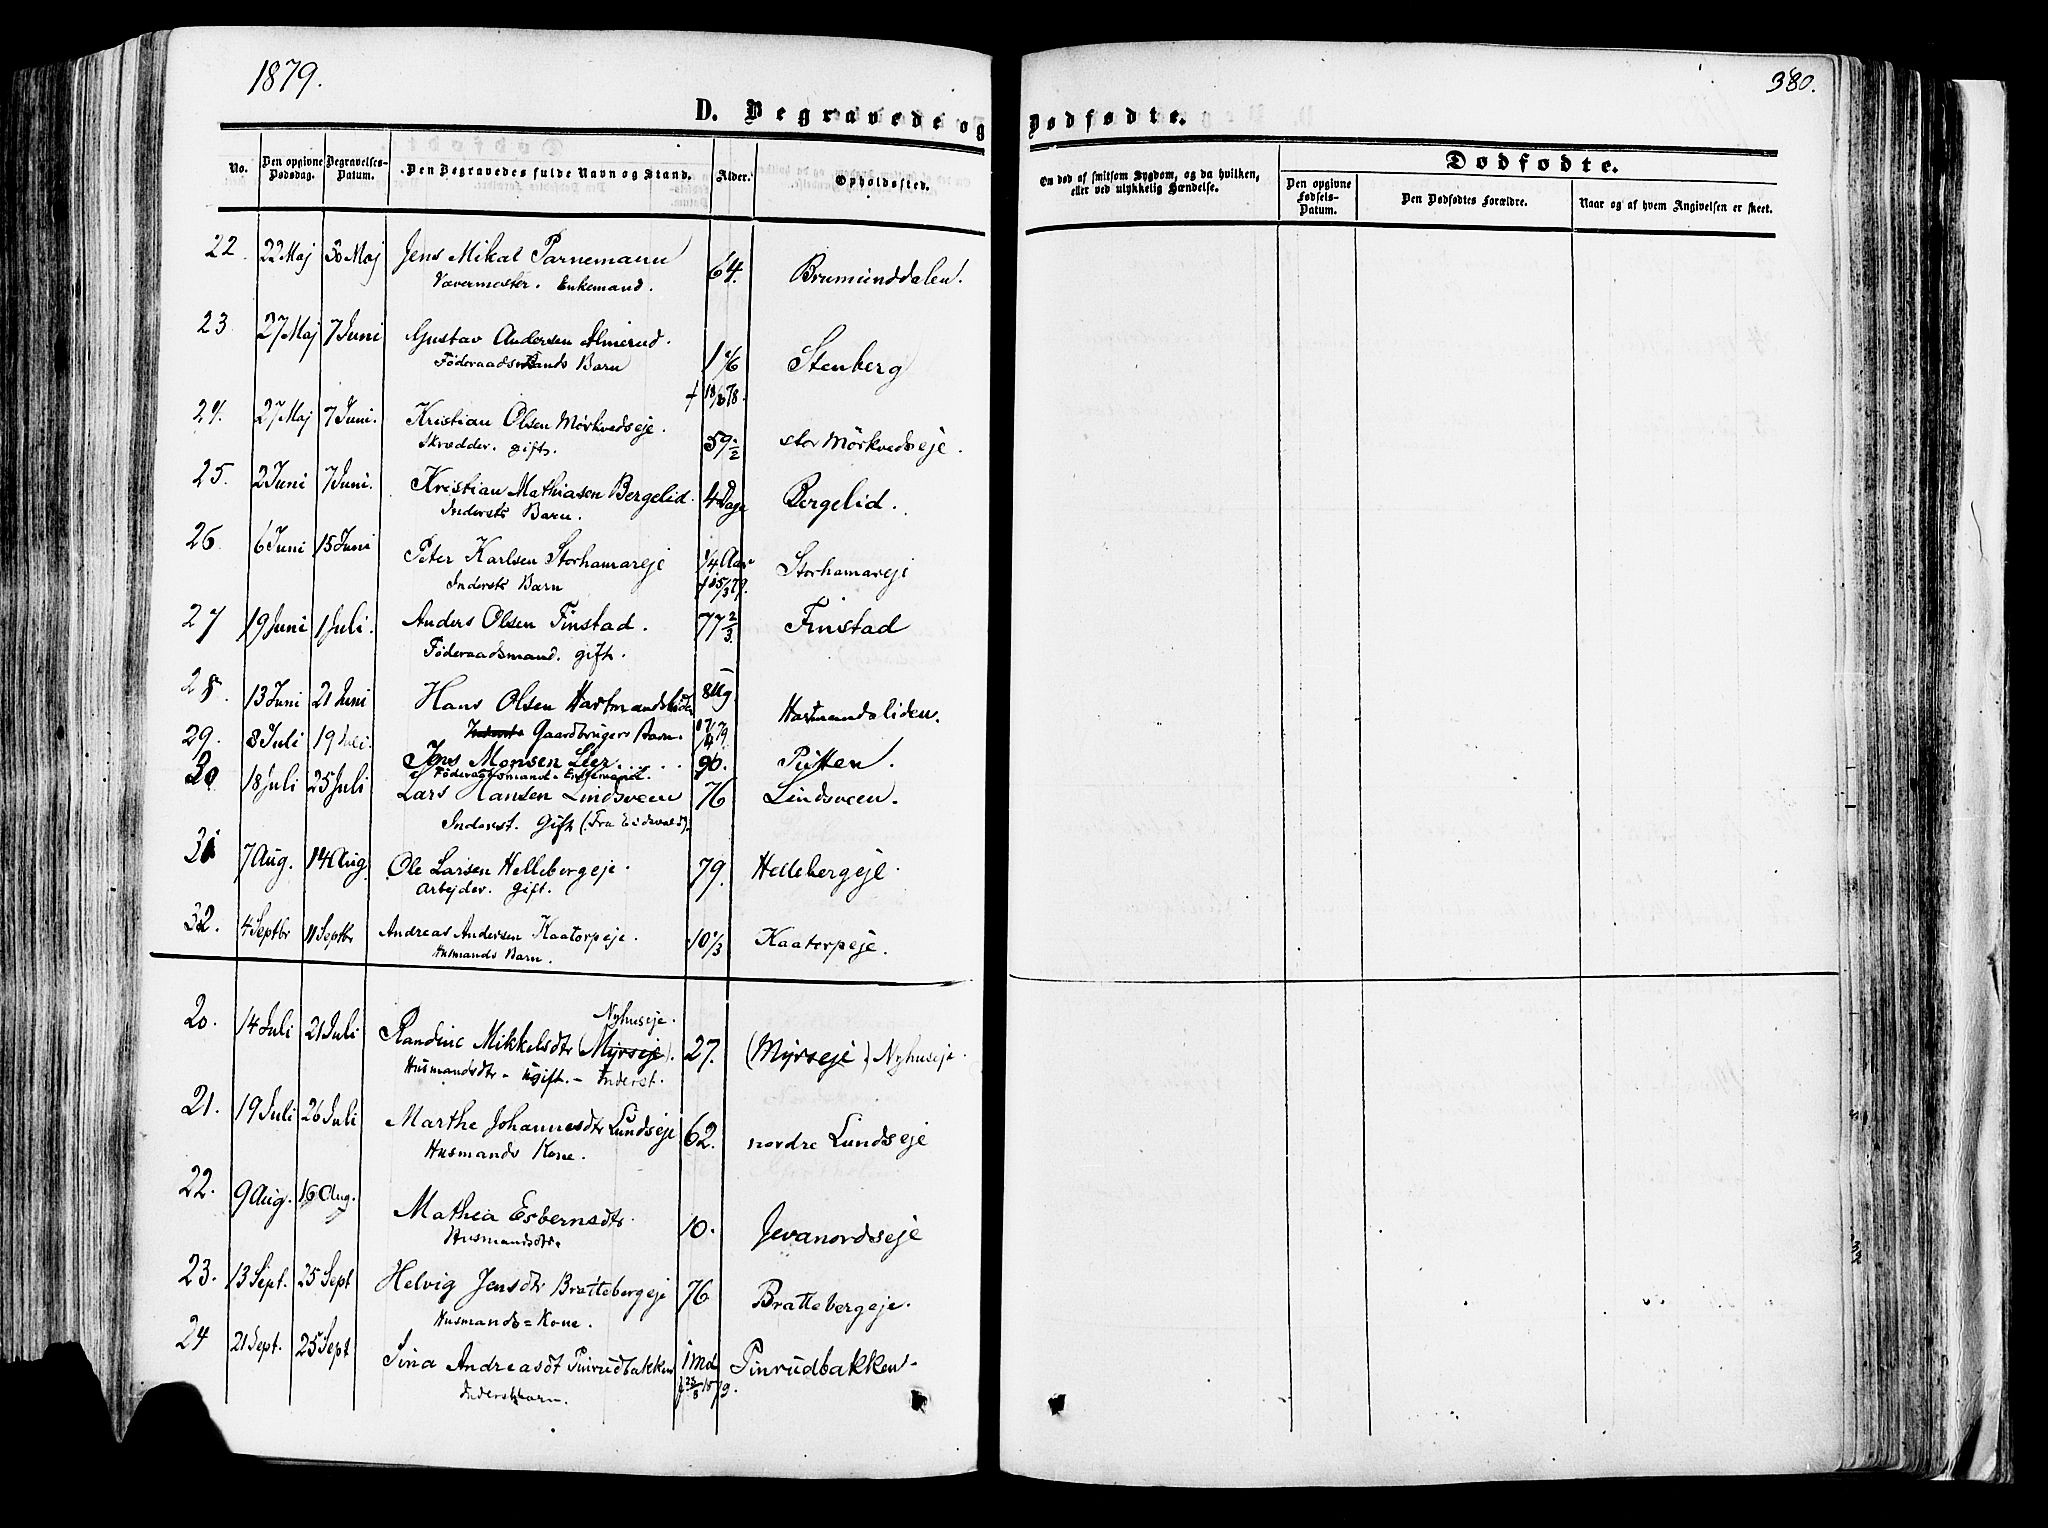 1879.
380.
D. Begravede og Dødfødte.
No. Den opgivne Dødsdag. Begravelses-Datum. Den Begravedes fulde Navn og Stand. Alder. Opholdssted. Om død af smitsom Sygdom, og da hvilken, eller ved ulykkelig Hændelse. Dødfødte.
Den opgivne Fødsels-Datum. Den Dødfødtes Forældre. Naar og af hvem Angivelsen er skeet.
22. 22 Maj 30 Maj Jens Mikal Parnemann 64. Brumunddalen.
Vævermester. Enkemand.
23. 27 Maj 7 Juni Gustav Andersen Almerud. 1 1/6 Stenberg
Føderaadsmands Barn
24. 27 Maj 7 Juni. Kristian Olsen Mørkvedseje. 59 1/2 stor Mörkvedseje.
Skrædder. gift.
25. 2 Juni 7 Juni. Kristian Mathiasen Bergelid. 4 Dage Bergelid.
Indersts Barn.
26 6 Juni 15 Juni Peter Karlsen Storhamareje 1/4 Aar Storhamareje
Indersts Barn
27 19 Juni 1 Juli. Anders Olsen Finstad. 77 2/3 Finstad
Føderaadsmand. gift.
28. 13 Juni 21 Juni Hans Olsen Hartmandsliden 8 Ug. Hartmandsliden.
Gaardbrugers Barn. 17/4 79.
29. 8 Juli 19 Juli. Jens Monsen Lier 90. Putten.
Føderaadsmand. Enkemand.
30 18 Juli 25 Juli Lars Hansen Lindsveen 76 Lindsveen.
Inderst. Gift (Fra Eidsvold).
31 7 Aug. 14 Aug Ole Larsen Hellebergeje. 79. Hellebergeje.
Arbejder. gift.
32. 4 Septbr 11 Septbr Andreas Andersen Kaatorpeje. 10 1/3 Kaatorpeje.
Husmands Barn.
Nyhuseje.
20. 14 Juli 21 Juli Randine Mikkelsdtr (Myrseje). 27. (Myrseje) Nyhuseje.
Husmandsdtr - Ugift. - Inderst.
21. 19 Juli 26 Juli Marthe Johannesdtr Lundseje 62. nordre Lundseje
Husmands Kone.
22. 9 Aug. 16 Aug. Mathea Esbernsdtr. 10. Jevanordseje
Husmandsdtr.
23. 13 Sept. 25 Sept Helvig Jensdtr Brattebergeje 76 Brattebergeje.
Husmands=Kone.
24 21 Sept. 25 Sept Sina Andreasdt Pinrudbakken 1 Md Pinrudbakken
Inderstbarn.